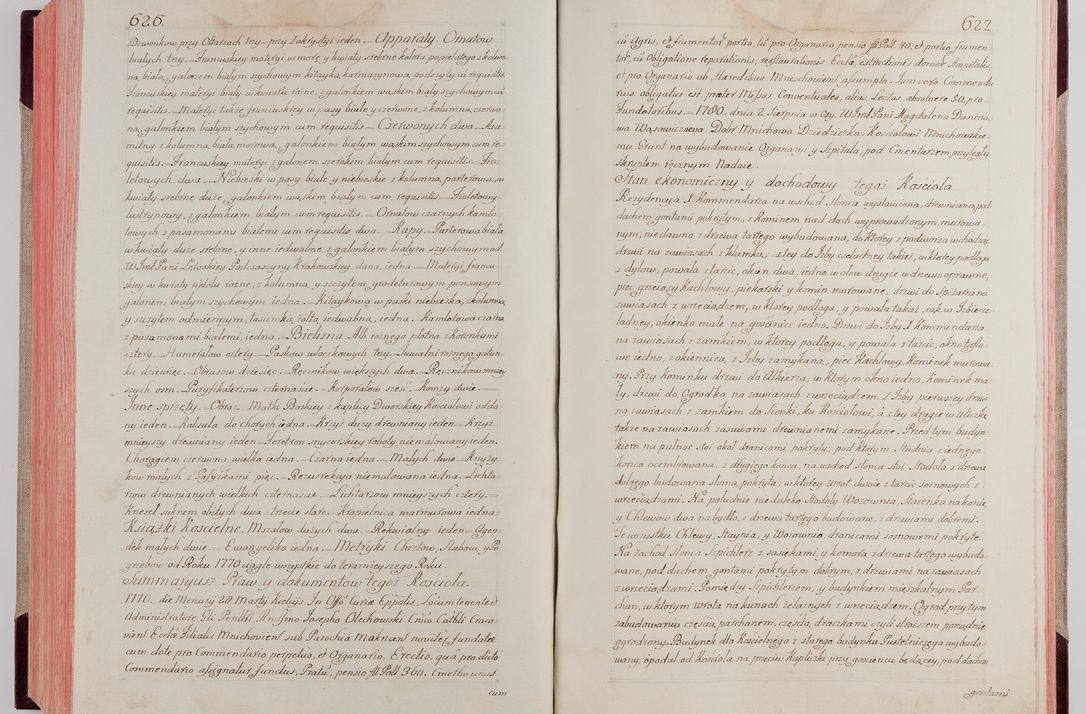 626.
Dzwonkow przy Ołtarzach try przy Zakrystyi ieden. Apparaty Ornatow
białych try. Francuskiey materyi w morę, y kwiaty srebrne koloru popielatego z kolum
ną białą galonem białym szychowym kitayką karmazynową podszyty cū requisitis.
Francuskiey materyi biały w kwiatki różne z galonkiem wąskim białym szychowym cū
requisitis. Materyi także francuskiey w pasy białe y czerwone, z kolumną czerwo
ną, galonkiem białym szychowym cum requisitis. Czerwonych dwa. Axa
mitny z kolumną białą morową, galonkiem białym wąskim szychowym cum re
quisitis. Francuskiey materyi z galonem szerokim białym cum requisitis. Fio
letowych dwa. Niebieski w pasy białe y niebieskie z kolumną, parterową, w
kwiaty srebrne duże, galonkiem wąskim białym cum requisitis. Fioletowy
lustrynowy z galonkiem białym cum requisitis. Ornatow czarnych kamlo
towych z pasamonami białemi cum requisitis dwa. Kapy. Parterowa biała
w kwiaty duże srebrne, y inne iedwabne, z galonkiem białym szychowym od
W Jmć Pani Letoskiey Podczaszyny Krakowskiey dana, iedna. Materyi francu
skiey w kwiaty wielu różne, z kolumną, y szczytem grodeturowym ponsowym
galonem białym szychowym iedna. Kitaykowa w paski niebieska, z kolumną,
y szczytem odmiennym, tasiemką żółtą iedwabną, iedna. Kamlotowa czarna
z pasamonami białemi, iedna. Bielizna. Alb różnego płotna z koronkami
cztery. Humerałow cztery. Paskow włoczkowych try. Tuwalni różnego gatun
ku dziewięć. Obrusow dziesięć. Ręcznikow większych dwa. Ręcznikow mniey
szych osm. Puryfikaterzow czternaście. Korporałow sześć. Komży dwie.
Inne sprzęty. Obraz Matki Boskiey z kaplicy Dworskiey Kościołowi odda
ny ieden. Kapsuła do chorych iedna. Krzyż duży drewniany ieden. Krzyż
mnieyszy drewniany ieden. Feretron snycerskiey roboty niemalowany ieden.
Chorągiew czerwona wielka iedna. Czarna iedna. Małych dwie. Krzyży
kow małych z Passyikami pięć. Rezurrekcya niemalowana iedna. Lichta
rzow drewnianych wielkich czternaście. Lichtarzow mnieyszych cztery.
Krzeseł suknem obitych dwa trzecie stare. Kropielnica marmurowa iedna.
Książki Koscielne. Mszałow dużych dwa. Rekwialny ieden. Agen
dek małych dwie. Ewangelika iedna. Metryki Chrztow, Ślubow, y Po
grzebow od Roku 1770 ciągle wszystkie do teraznieyszego Roku.
Summaryusz Praw y dokumentow tegoż Kościoła.
1770. die Mercurij 28 Martij Kielcijs. In Offō Curiæ Eppālis, Locum tenente d
Administratore Gli Perillri Rndssmo Josepho Olechowski Cnico Cathli Craco
vien Ecclā Filialis Mnichovien sub Parochia Maknien noviter fundatæ
cum dote pro Commendario perpetuo, et Organario. Erectio, qua pro dicto
Commendario assignatur fundus, Pratū, pensio fl Poll 360. Cmetho unus
cum
627.
cū Agris, et frumentor portio, tū pro Organario, pensio fl Poll 40, et portio frumen
tor, cū Obligatione reparationis, restaurationis Ecclā, extructionis domor Hospitalis,
et pro Organario ab Hæredibus Mnichovien assumpta. Jam vero Commenda
rius obligatus est, præter Missas Conventuales, alias Lectas absolvere 50, pro
Fundatoribus. 1780. dnia 2. Sierpnia w Oty W Jmć Pani Magdalena Dunino
wa Wąsowiczowa Dobr Mnichowa Dziedziczka, Kościołowi Mnichowskie
mu Grunt na wybudowanie Organarii y Szpitala, pod Cmentarzem przyległy
Skryptem ręcznym Nadaie.
Stan ekonomiczny y dochodowy tegoż Kościoła
Rezydencya X Kommendarza na wschod Słonca wystawiona, drewniana, pod
dachem gontami pokrytym, z Kominem nad dach wyprowadzonym, murowa
nym, niedawno z drzewa tartego wybudowana, do ktorey z podworza wchodząc
drzwi na zawiasach z klamką, z tey do Izby czelastney takież, w ktorey podłoga
z dylow, powała z tarcic, okien dwa, iedno w ołow drugie w drzewo oprawne,
piec grzeiący kachlowy, piekarski y komin murowane, drzwi do Spiżarni na
zawiasach z wrzeciądzem, w ktorey podłoga, y powała takaż, iak w Izbie cze
ladney, okienko małe na gościniec iedno. Drzwi do Izby X Kommendarza
na zawiasach z zamkiem, w ktorey podłoga, y powała z tarcic, okno taflo
we iedno, z okiennicą, z Izby zamykaną, piec Kachlowy, Kominek murowa
ny. Przy Kominku drzwi do Alkierza, w ktorym okno iedno, Kominek ma
ły, drzwi do Ogrodka na zawiasach z wrzeciądzem. Z Izby pierwszey drzwi
na zawiasach z zamkiem do Sionki, ku Kościołowi, á z tey drugie w Uliczkę
także na zawiasach zasuwami drewnianemi zamykane. Przed tym budyn
kiem na pułnoc stoi okał dranicami pokryty, pod ktorym Studnia z iednego
konca ocembrowana, z drugiego konca, na wschod Słonca stoi Stodoła z drzewa
dobrego budowana słomą pokryta, w ktorey Wrot dwoie z tarcic sosnowych z
wrzeciądzami. Na południe niedaleko Stodoły Wozownia, Stajenka na konie,
y Chlewow dwa na bydło, z drzewa tartego budowane, z drzwiami dobremi.
Te wszystkie Chlewy, Staynia, y Wozownia dranicami sosnowemi pokryte.
Na zachod Słonca Szpichlerz z sasiekami, y komorą z drzewa tartego wybudo
wane, pod dachem gontami pokrytym dobrym, z drzwiami na zawiasach
z wrzeciądzami. Pomiędzy Szpichlerzem, y budynkiem mieszkalnym Par
chan, w ktorym Wrota na kunach żelaznych z wrzeciądzem. Ogrod przy tym
zabudowaniu częścią parchanem, częścią draczkami czyli stroiszem porządnie
ogrodzony. Budynek dla Kościelnego z starego budynku Pustelniczego wybudo
wany, opodal od Kościoła na przeciw Kapliczki przy gościencu będącey, pod dachem
gontami